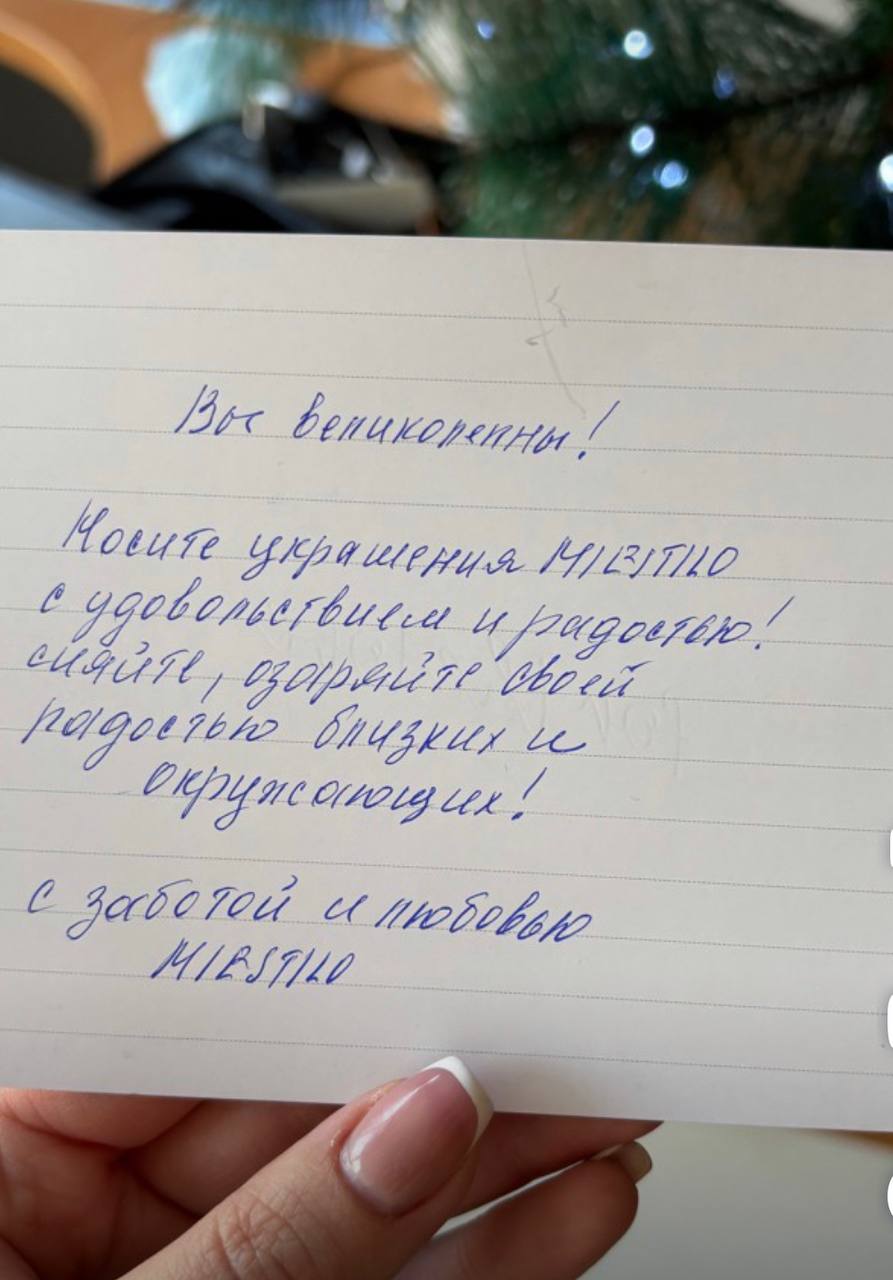 Вы великолепны!
Носите украшения MIESTILO
с удовольствием и радостью!
сияйте, озаряйте своей
радостью близких и
окружающих!
с заботой и любовью
MIESTILO